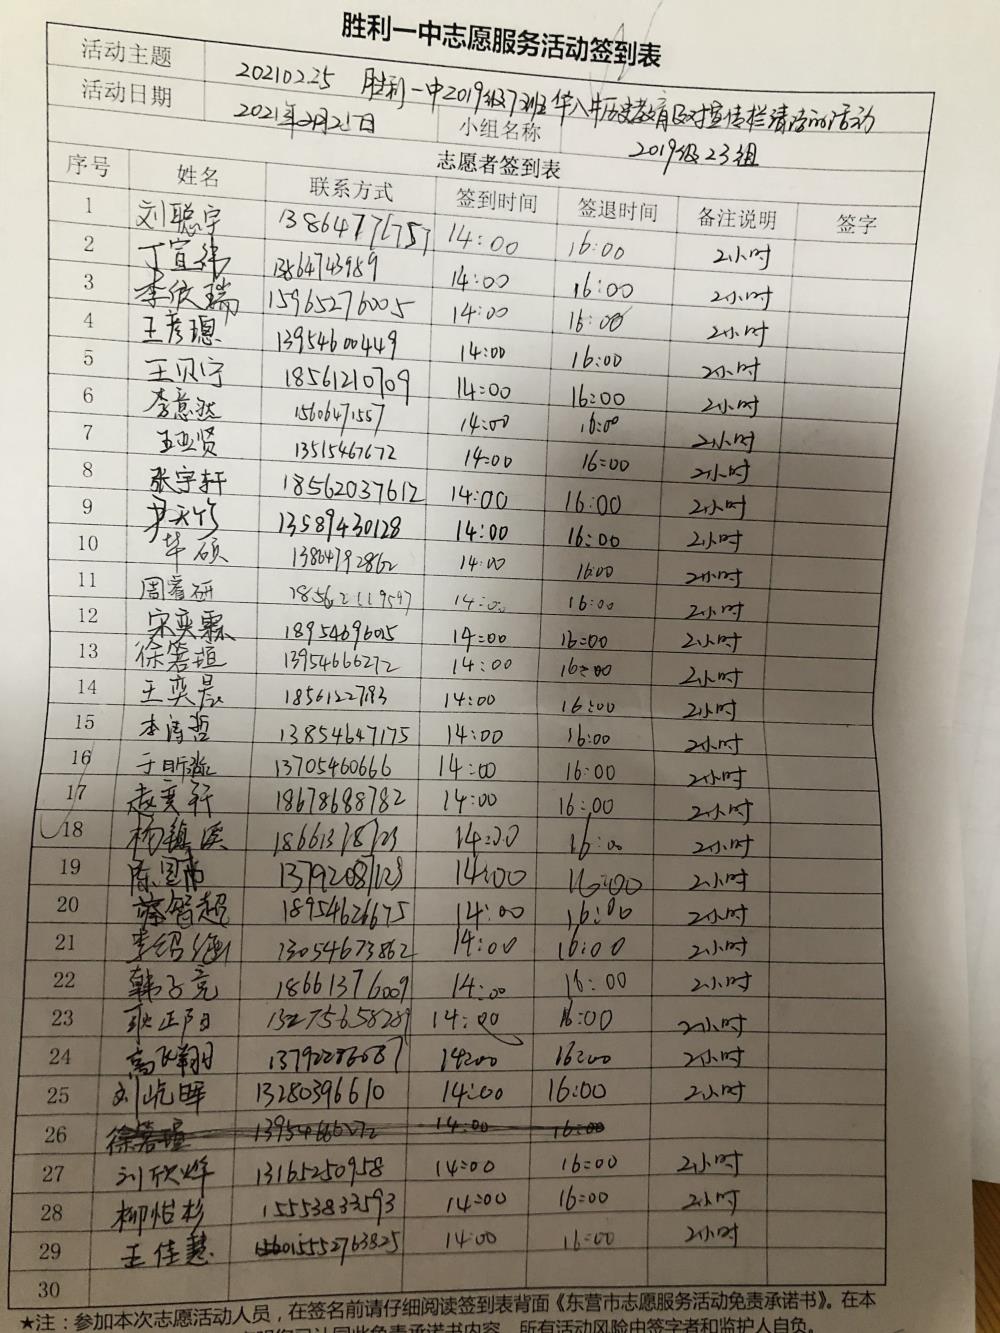 胜利一中志愿服务活动签到表
活动主题 20210225 胜利一中2019级7班 历史教育 宣传栏清洁活动
活动日期 2021年2月25日 小组名称 2019级23组
志愿者签到表
序号 姓名 联系方式 签到时间 签退时间 备注说明 签字
1 刘聪宇 14:00 16:00 2小时
2 丁宣 13864743989 14:00 16:00 2小时
3 李欣瑞 15965276005 14:00 16:00 2小时
4 王彦璁 13954600449 14:00 16:00 2小时
5 王贝宁 18561210709 14:00 16:00 2小时
6 李意 15606471557 14:00 16:00 2小时
7 王亚贤 13515467672 14:00 16:00 2小时
8 张宇轩 18562037612 14:00 16:00 2小时
9 尹天 13589430128 14:00 16:00 2小时
10 毕硕 13864792862 14:00 16:00 2小时
11 周睿研 14:00 16:00 2小时
12 宋奕霖 18954696015 14:00 16:00 2小时
13 徐箬瑄 13954666272 14:00 16:00 2小时
14 王奕晨 14:00 16:00 2小时
15 李涛哲 13854647175 14:00 16:00 2小时
16 于昕 13705460666 14:00 16:00 2小时
17 赵奕轩 18678688782 14:00 16:00 2小时
18 杨镇溪 14:00 16:00 2小时
19 陈 13792087123 14:00 16:00 2小时
20 智超 18954626675 14:00 16:00 2小时
21 李绍 13054673862 14:00 16:00 2小时
22 韩子亮 18661376009 14:00 16:00 2小时
23 耿正阳 13275658289 14:00 16:00 2小时
24 高飞翔 13792286687 14:00 16:00 2小时
25 刘屹晖 13280396610 14:00 16:00 2小时
26 徐箬瑄 14:00 16:00
27 刘欣烨 13165250958 14:00 16:00 2小时
28 柳怡杉 15553833593 14:00 16:00 2小时
29 王佳慧 15552763825 14:00 16:00 2小时
30
★注：参加本次志愿活动人员，在签名前请仔细阅读签到表背面《东营市志愿服务活动免责承诺书》。在本
此免责承诺书内容，所有活动风险由签字者和监护人自负。